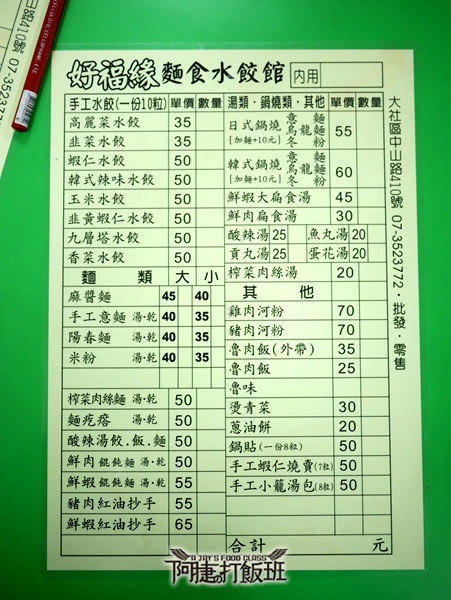 好福緣麵食水餃館 內用
手工水餃(一份10粒) 單價 數量
高麗菜水餃 35
韭菜水餃 35
蝦仁水餃 50
韓式辣味水餃 50
玉米水餃 50
韭黃蝦仁水餃 50
九層塔水餃 50
香菜水餃 50
麵類 大 小
麻醬麵 45 40
手工意麵 湯‧乾 40 35
陽春麵 湯‧乾 40 35
米粉 湯‧乾 40 35
榨菜肉絲麵 湯‧乾 50
麵疙瘩 湯‧乾 50
酸辣湯餃.飯.麵 50
鮮肉餛飩麵 湯‧乾 50
鮮蝦餛飩麵 湯‧乾 55
豬肉紅油抄手 55
鮮蝦紅油抄手 65
湯類‧鍋燒類‧其他 單價 數量
日式鍋燒 意麵 烏龍麵 冬粉 55
[加麵+10元]
韓式鍋燒 意麵 烏龍麵 冬粉 60
[加麵+10元]
鮮蝦大扁食湯 45
鮮肉扁食湯 30
酸辣湯 25 魚丸湯 20
貢丸湯 25 蛋花湯 20
榨菜肉絲湯 20
其他
雞肉河粉 70
豬肉河粉 70
魯肉飯(外帶) 35
魯肉飯 25
魯味
燙青菜 30
蔥油餅 20
鍋貼(一份8粒) 50
手工蝦仁燒賣(7粒) 50
手工小籠湯包(8粒) 50
合計 元
大社區中山路410號 07-3523772‧批發‧零售
山路410號 07-3523772
CELLULOID, CELLOPHANE ETC.
A JAY'S FOOD CLASS
阿捷打飯班